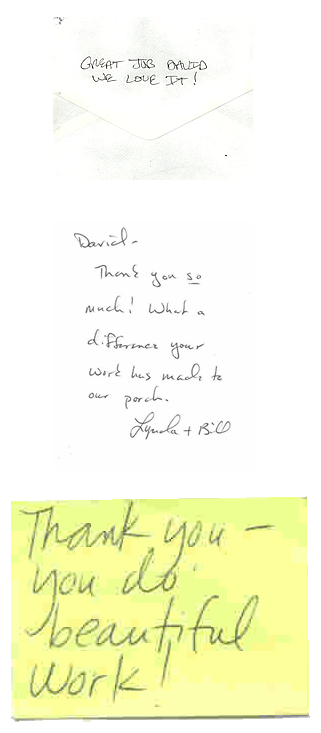 GREAT JOB DAVID
WE LOVE IT!
David-
Thank you so
much! What a
difference your
work has made to
our porch.
Lynda + Bill
Thank you –
you do
beautiful
work!